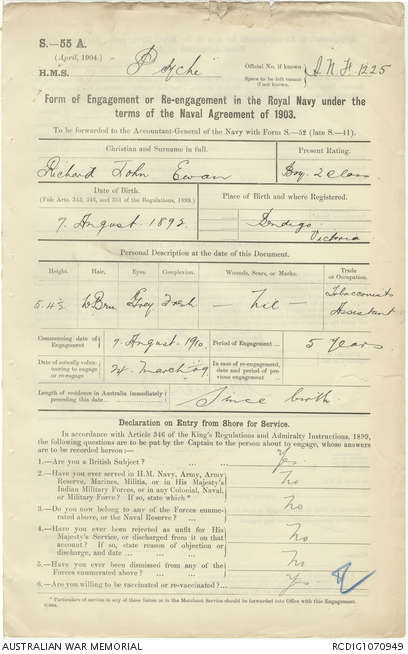 S.—55 A.
(April, 1904.)
H.M.S. Psyche
Official No. if known
Space to be left vacant if not known.
A.N.F. 1225
Form of Engagement or Re-engagement in the Royal Navy under the
terms of the Naval Agreement of 1903.
To be forwarded to the Accountant-General of the Navy with Form S.—52 (late S.—41).
Christian and Surname in full.
Present Rating.
Richard John Ewan
Boy. 2 Class
Date of Birth.
(Vide Arts. 343, 346, and 351 of the Regulations, 1899.)
Place of Birth and where Registered.
7. August. 1892.
Bendigo
Victoria
Personal Description at the date of this Document.
Height. Hair. Eyes. Complexion. Wounds, Scars, or Marks. Trade or Occupation.
5.4½ Lt Brn Grey Fresh — Nil — Tobacconists Assistant
Commencing date of Engagement 7. August. 1910. Period of Engagement ... 5 Years
Date of actually volunteering to engage or re-engage 24. March 09 In case of re-engagement, date and period of previous engagement
Length of residence in Australia immediately preceding this date. Since birth.
Declaration on Entry from Shore for Service.
In accordance with Article 346 of the King's Regulations and Admiralty Instructions, 1899,
the following questions are to be put by the Captain to the person about to engage, whose answers
are to be recorded hereon:—
1.—Are you a British Subject? ... ... Yes.
2.—Have you ever served in H.M. Navy, Army, Army
Reserve, Marines, Militia, or in His Majesty's
Indian Military Forces, or in any Colonial, Naval,
or Military Force? If so, state which* No
3.—Do you now belong to any of the Forces enumerated
above, or the Naval Reserve? ... No
4.—Have you ever been rejected as unfit for His
Majesty's Service, or discharged from it on that
account? If so, state reason of objection or
discharge, and date ... ... No
5.—Have you ever been dismissed from any of the
Forces enumerated above? ... ... No
6.—Are you willing to be vaccinated or re-vaccinated?... Yes
* Particulars of service in any of these forces or in the Merchant Service should be forwarded into Office with this Engagement.
AUSTRALIAN WAR MEMORIAL
RCDIG1070949